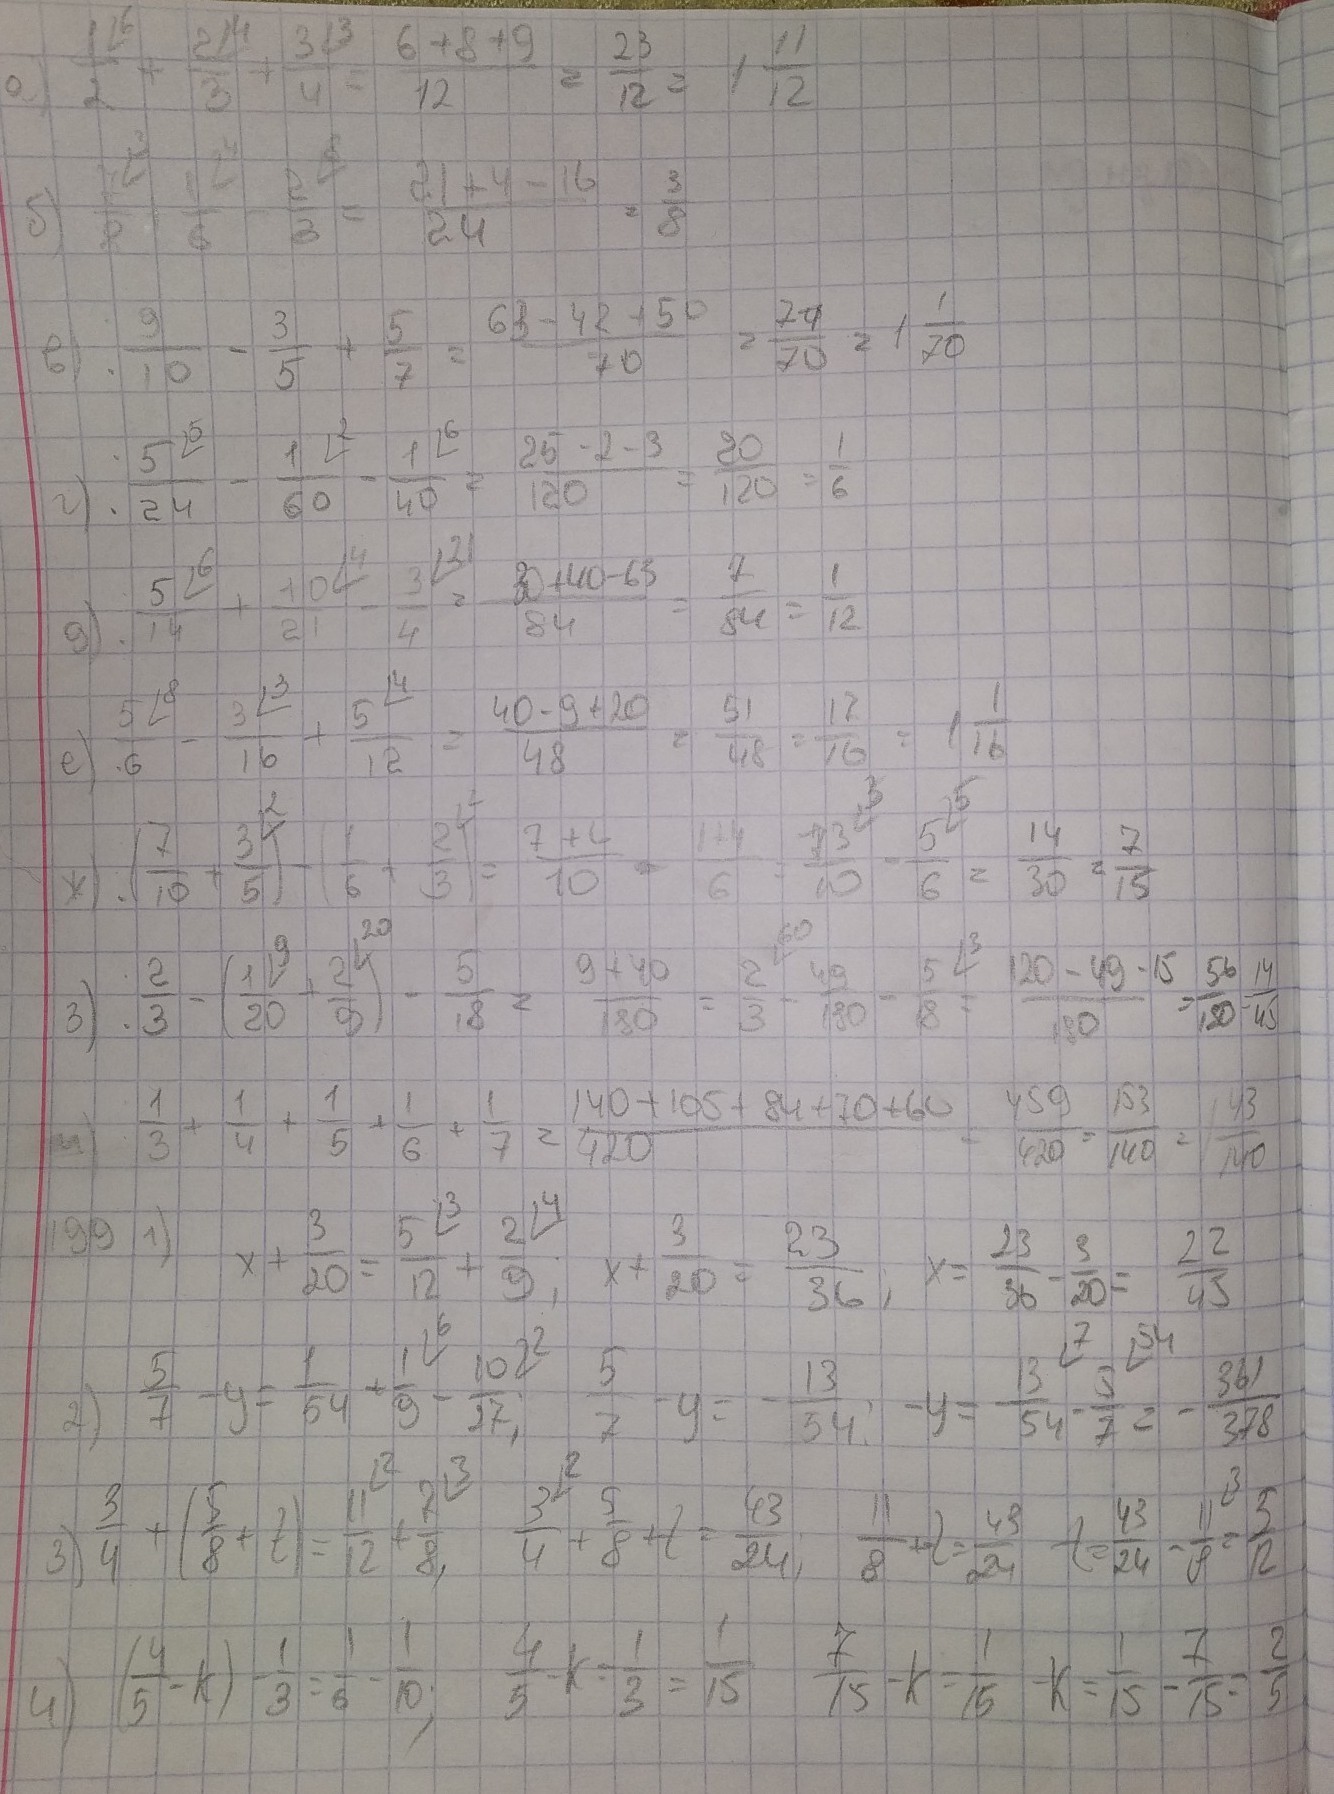 а) 1/2 + 2/3 + 3/4 = (6+8+9)/12 = 23/12 = 1 11/12
б) 7/8 1/6 - 2/3 = (21+4-16)/24 = 3/8
в) 9/10 - 3/5 + 5/7 = (63-42+50)/70 = 71/70 = 1 1/70
г) 5/24 - 1/60 - 1/40 = (25-2-3)/120 = 20/120 = 1/6
д) 5/14 + 10/21 - 3/4 = (30+40-63)/84 = 7/84 = 1/12
е) 5/6 - 3/16 + 5/12 = (40-9+20)/48 = 51/48 = 17/16 = 1 1/16
ж) (7/10 + 3/5) - (1/6 + 2/3) = (7+4)/10 - (1+4)/6 = 13/10 - 5/6 = 14/30 = 7/15
з) 2/3 - (1/20 + 2/9) - 5/18 = (9+40)/180 = 2/3 - 49/180 - 5/18 = (120-49-15)/180 = 56/180 = 14/45
и) 1/3 + 1/4 + 1/5 + 1/6 + 1/7 = (140+105+84+70+60)/420 = 459/420 = 153/140 = 1 43/140
199 1) x + 3/20 = 5/12 + 2/9; x + 3/20 = 23/36; x = 23/36 - 3/20 = 22/45
2) 5/7 - y = 1/54 + 1/9 - 10/27; 5/7 - y = -13/54; -y = -13/54 - 5/7 = -361/378
3) 3/4 + (5/8 + z) = 11/12 + 7/8; 3/4 + 5/8 + z = 43/24; 11/8 + z = 43/24 z = 43/24 - 11/8 = 5/12
4) (4/5 - k) - 1/3 = 1/6 - 1/10; 4/5 - k - 1/3 = 1/15 7/15 - k = 1/15 -k = 1/15 - 7/15 = 2/5